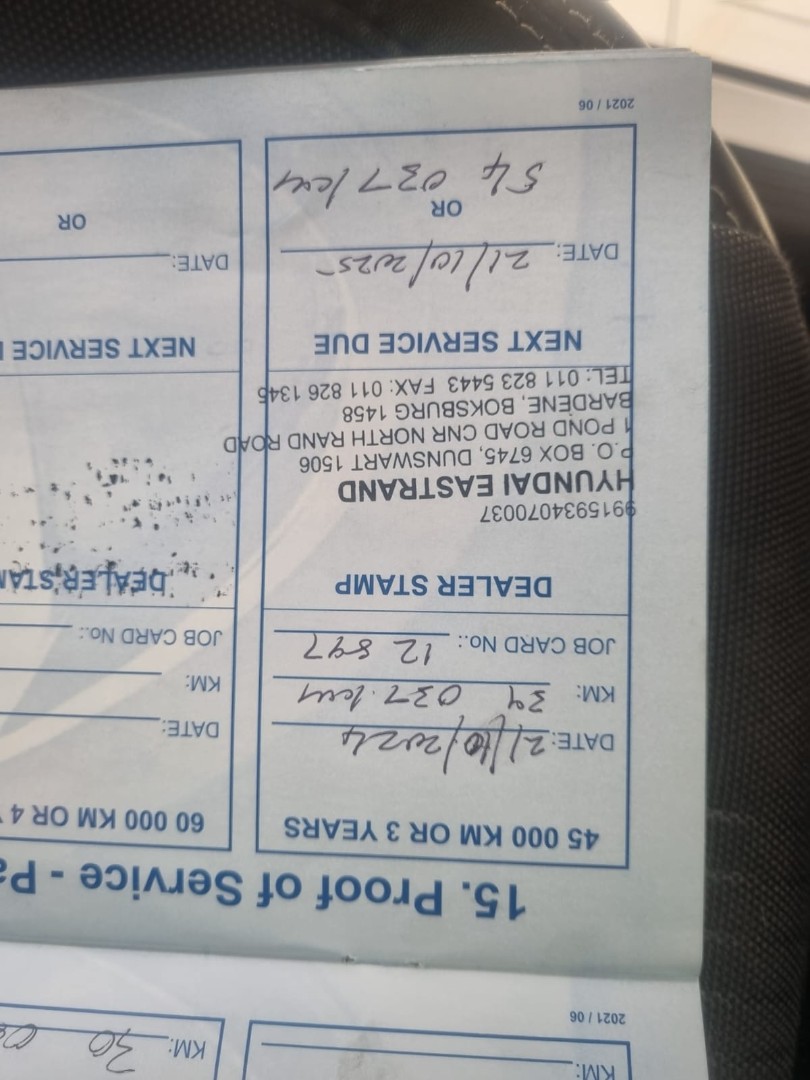 KM:
KM: 30
2021 / 06
15. Proof of Service - Pa
45 000 KM OR 3 YEARS
DATE: 21/10/2024
KM: 39 037 km
JOB CARD No.: 12 897
DEALER STAMP
9915934070037
HYUNDAI EASTRAND
P.O. BOX 6745, DUNSWART 1506
1 POND ROAD CNR NORTH RAND ROAD
BARDENE, BOKSBURG 1458
TEL: 011 823 5443 FAX: 011 826 1345
NEXT SERVICE DUE
DATE: 21/10/2025
OR
54 037 km
2021 / 06
60 000 KM OR 4
DATE:
KM:
JOB CARD No.:
DEALER STAM
NEXT SERVICE
DATE:
OR